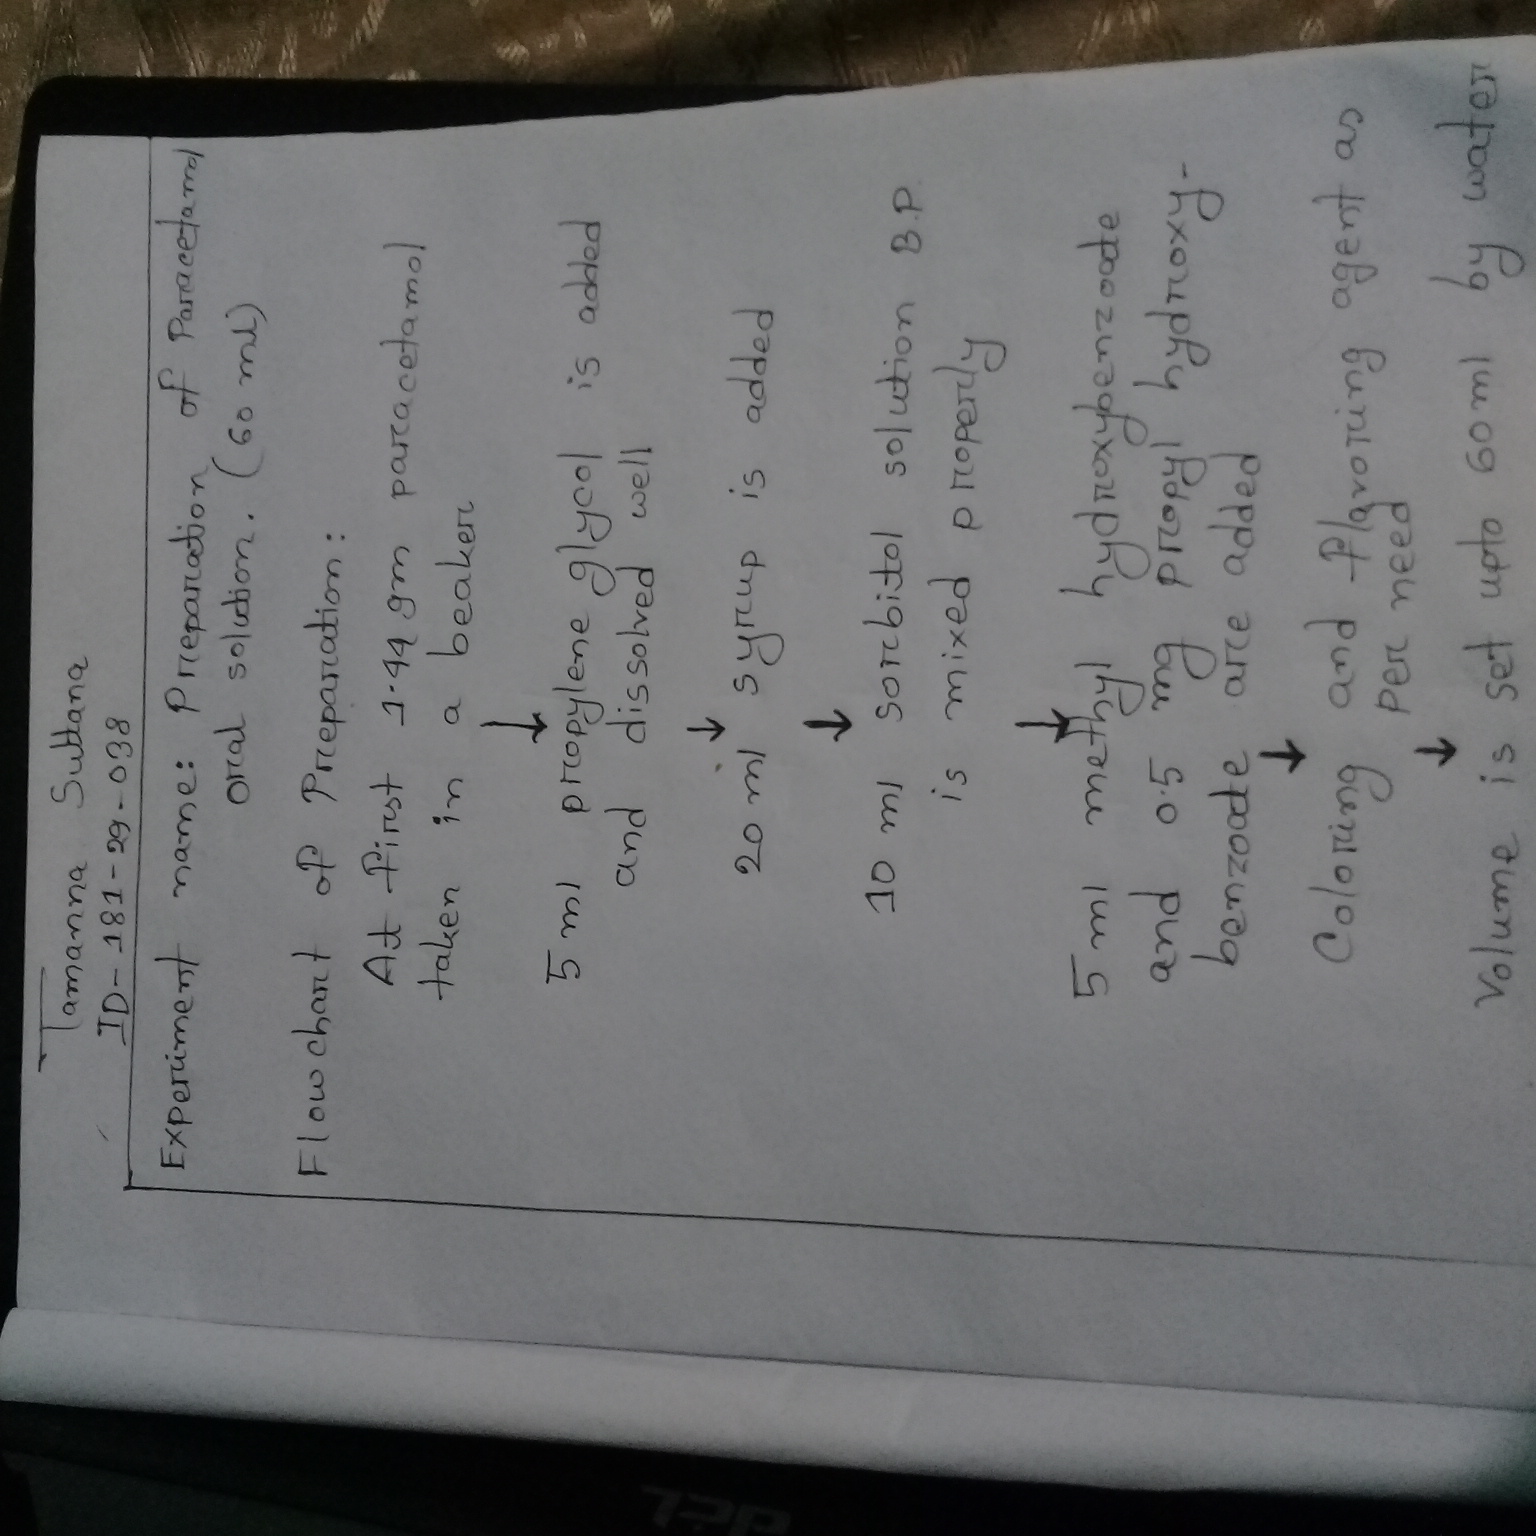 Tamanna Sultana
ID- 181-29-038
Experiment name: Preparation of Paracetamol
oral solution. (60 ml)
Flowchart of Preparation:
At first 1.44 gm paracetamol
taken in a beaker
↓
5 ml propylene glycol is added
and dissolved well
↓
20 ml syrup is added
↓
10 ml sorbitol solution B.P.
is mixed properly
↓
5 ml methyl hydroxybenzoate
and 0.5 mg propyl hydroxy-
benzoate are added
↓
Coloring and flavoring agent as
per need
↓
Volume is set upto 60 ml by water